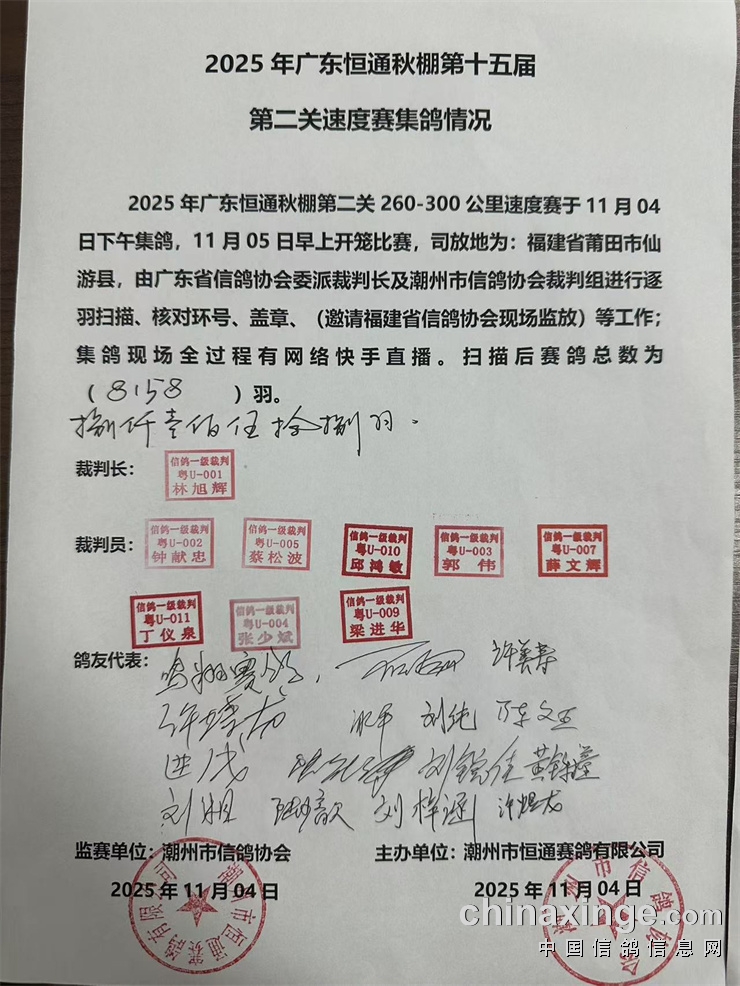 2025年广东恒通秋棚第十五届
第二关速度赛集鸽情况
2025年广东恒通秋棚第二关260-300公里速度赛于11月04
日下午集鸽，11月05日早上开笼比赛，司放地为：福建省莆田市仙
游县，由广东省信鸽协会委派裁判长及潮州市信鸽协会裁判组进行逐
羽扫描、核对环号、盖章、（邀请福建省信鸽协会现场监放）等工作；
集鸽现场全过程有网络快手直播。扫描后赛鸽总数为
（8158）羽。
捌仟壹佰伍拾捌羽.
裁判长：
信鸽一级裁判
粤U-001
林旭辉
裁判员：
信鸽一级裁判
粤U-002
钟献忠
信鸽一级裁判
粤U-005
蔡松波
信鸽一级裁判
粤U-010
邱鸿敏
信鸽一级裁判
粤U-003
郭伟
信鸽一级裁判
粤U-007
薛文辉
信鸽一级裁判
粤U-011
丁仪泉
信鸽一级裁判
粤U-004
张少斌
信鸽一级裁判
粤U-009
梁进华
鸽友代表：
刘纯
刘梓涵
监赛单位：潮州市信鸽协会
主办单位：潮州市恒通赛鸽有限公司
2025年11月04日
2025年11月04日
潮州市恒通赛鸽有限公司
潮州市信鸽协会
chinaxinge.com
中国信鸽信息网